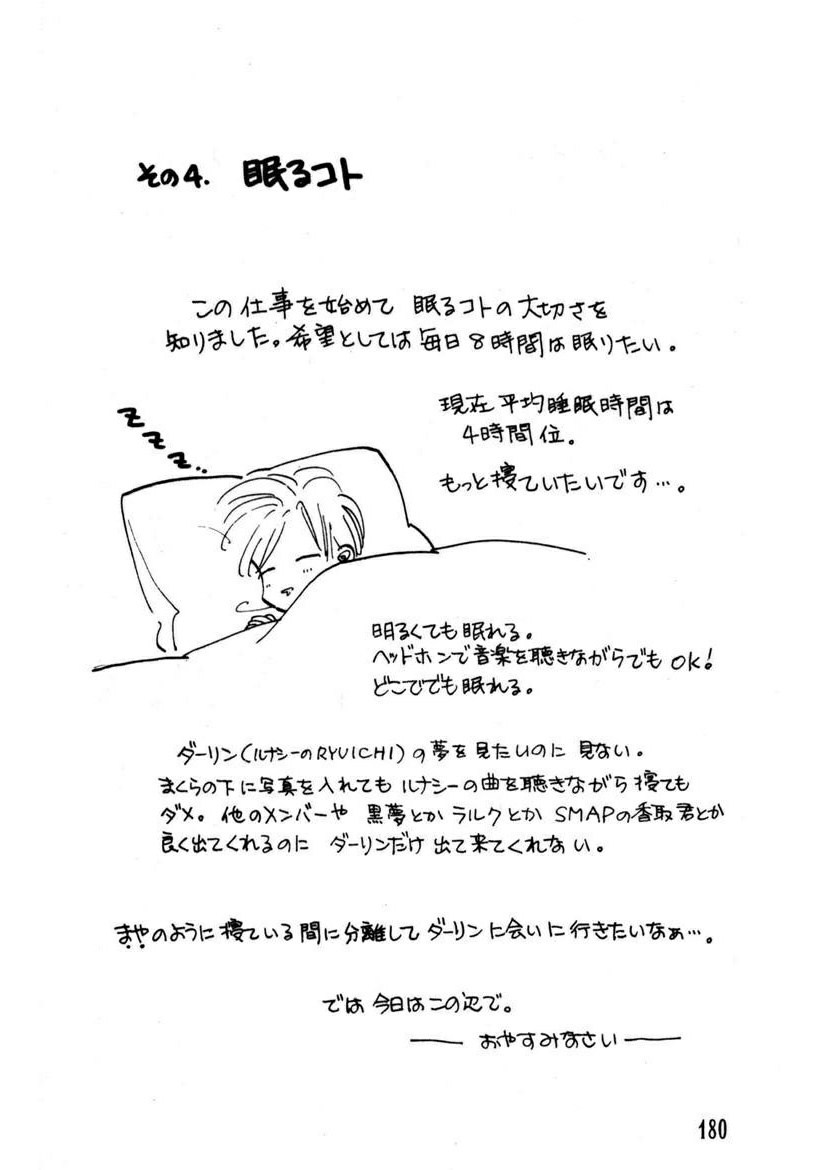 その4. 眠るコト
この仕事を始めて 眠るコトの大切さを
知りました。希望としては毎日8時間は眠りたい。
現在平均睡眠時間は
4時間位。
もっと寝ていたいです…。
Z Z Z..
明るくても眠れる。
ヘッドホンで音楽を聴きながらでもOK!
どこででも眠れる。
ダーリン(ルナシーのRYUICHI)の夢を見たいのに見ない。
まくらの下に写真を入れてもルナシーの曲を聴きながら寝ても
ダメ。他のメンバーや黒夢とかラルクとかSMAPの香取君とか
良く出てくれるのにダーリンだけ出て来てくれない。
まやのように寝ている間に分離してダーリンに会いに行きたいなぁ…。
では今日はこの辺で。
── おやすみなさい ──
180